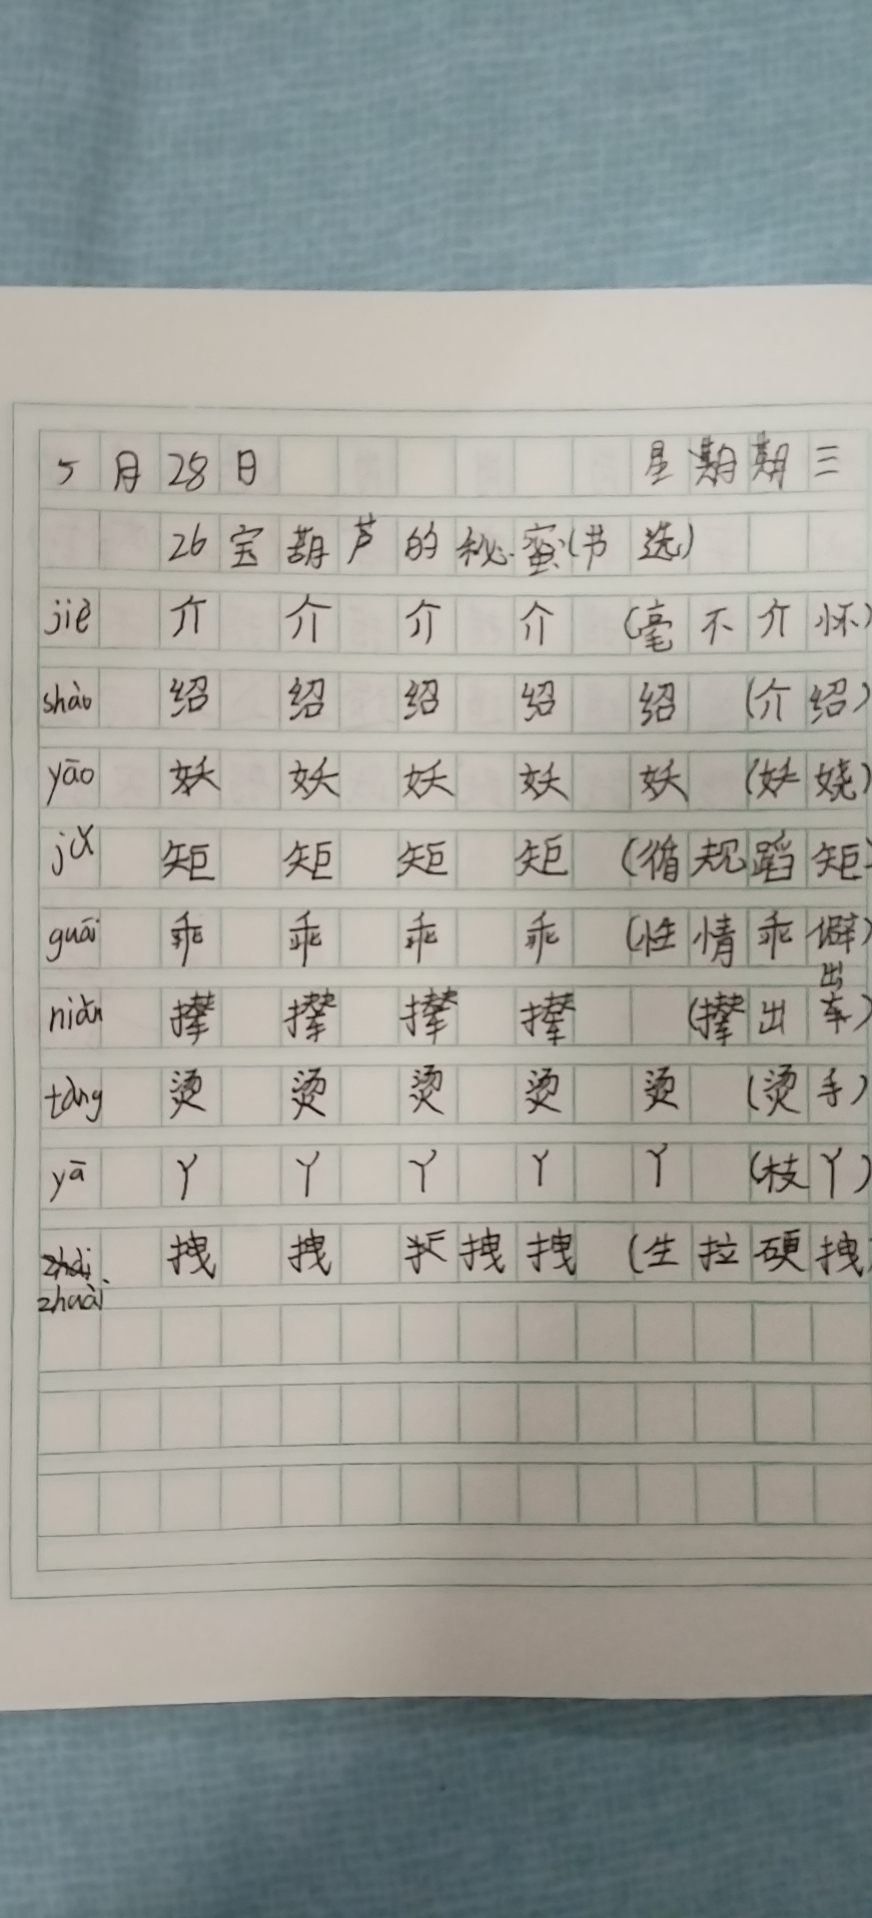 5月28日 星期期三
26宝葫芦的秘蜜(节选)
jiè 介 介 介 介 (毫不介怀)
shào 绍 绍 绍 绍 绍 (介绍)
yāo 妖 妖 妖 妖 妖 (妖娆)
jǔ 矩 矩 矩 矩 (循规蹈矩)
guāi 乖 乖 乖 乖 (性情乖僻)
niǎn 撵 撵 撵 撵 (撵出出车)
tàng 烫 烫 烫 烫 烫 (烫手)
yā 丫 丫 丫 丫 丫 (枝丫)
zhài 拽 拽 拽 拽 (生拉硬拽
zhuài